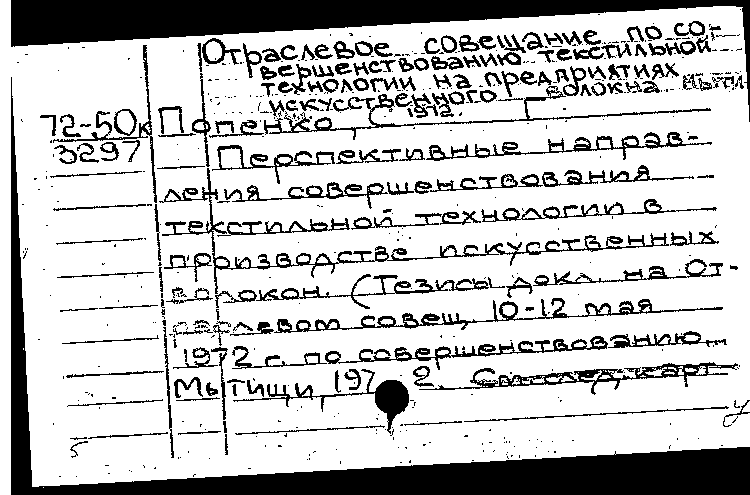 Отраслевое совещание по со-
вершенствованию текстильной
технологии на предприятиях
искусственного волокна
1972.
72-50к Попенко,
3297 Перспективные направ-
ления совершенствования
текстильной технологии в
производстве искусственных
волокон. (Тезисы докл. на От-
раслевом совещ. 10-12 мая
1972 г. по совершенствованию...
Мытищи, 1972. См. след. карт
5 у